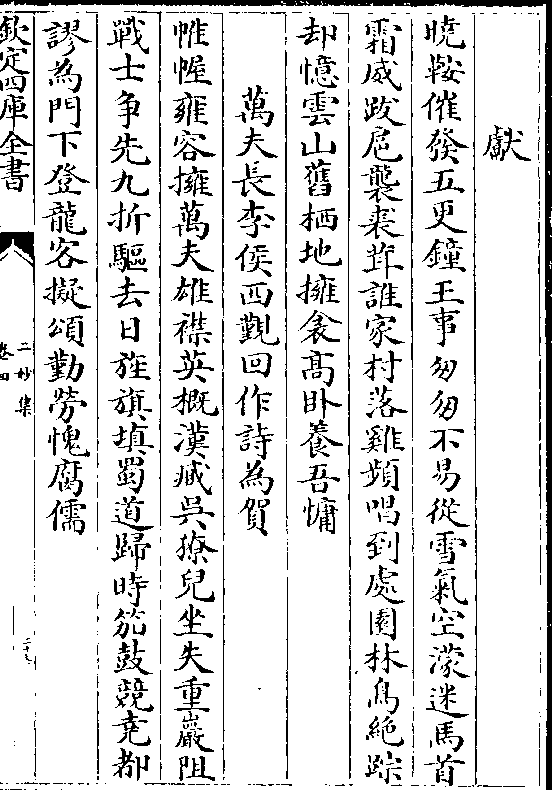 獻
曉鞍催發五更鐘王事匆匆不易從雪氣空濛迷馬首
霜威跋扈襲裘茸誰家村落雞頻唱到處園林鳥絶踪
却憶雲山舊栖地擁衾髙卧養吾慵
萬夫長李侯西覲回作詩為賀
帷幄雍容擁萬夫雄襟英概漢臧吳獠兒坐失重巖阻
戰士争先九折驅去日旌旗填蜀道歸時笳鼓競堯都
謬為門下登龍客擬頌勤勞愧腐儒
欽定四庫全書
二妙集
卷四